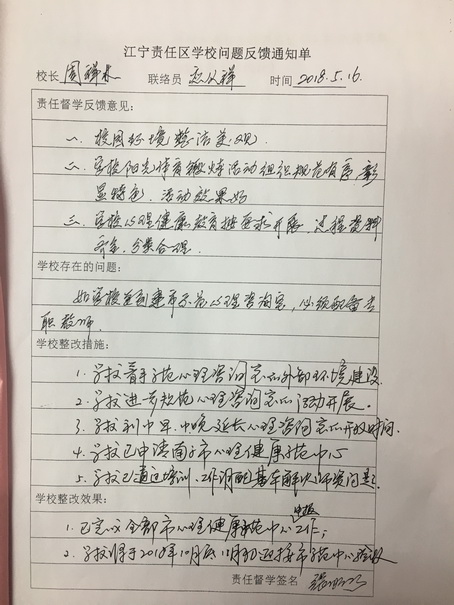 江宁责任区学校问题反馈通知单
校长 周祥 联络员 时间 2018.5.16.
责任督学反馈意见：
一、校园环境整洁美观.
二、学校阳光体育锻炼活动组织规范有序，彰
显特色，活动效果好
三、学校心理健康教育按要求开展，过程资料
齐全，分类合理.
学校存在的问题：
如学校要创建市示范心理咨询室，必须配备专
职教师.
学校整改措施：
1. 学校着手示范心理咨询室的外部环境建设.
2. 学校进一步规范心理咨询室的活动开展.
3. 学校利用中午、中晚延长心理咨询室的开放时间.
4. 学校已申请南京市心理健康示范中心
5. 学校已通过培训、工作调配基本解决师资问题.
学校整改效果：
1. 已完成全部市心理健康示范中心申报工作；
2. 学校将于2018年10月底11月初迎接市示范中心验收
责任督学签名